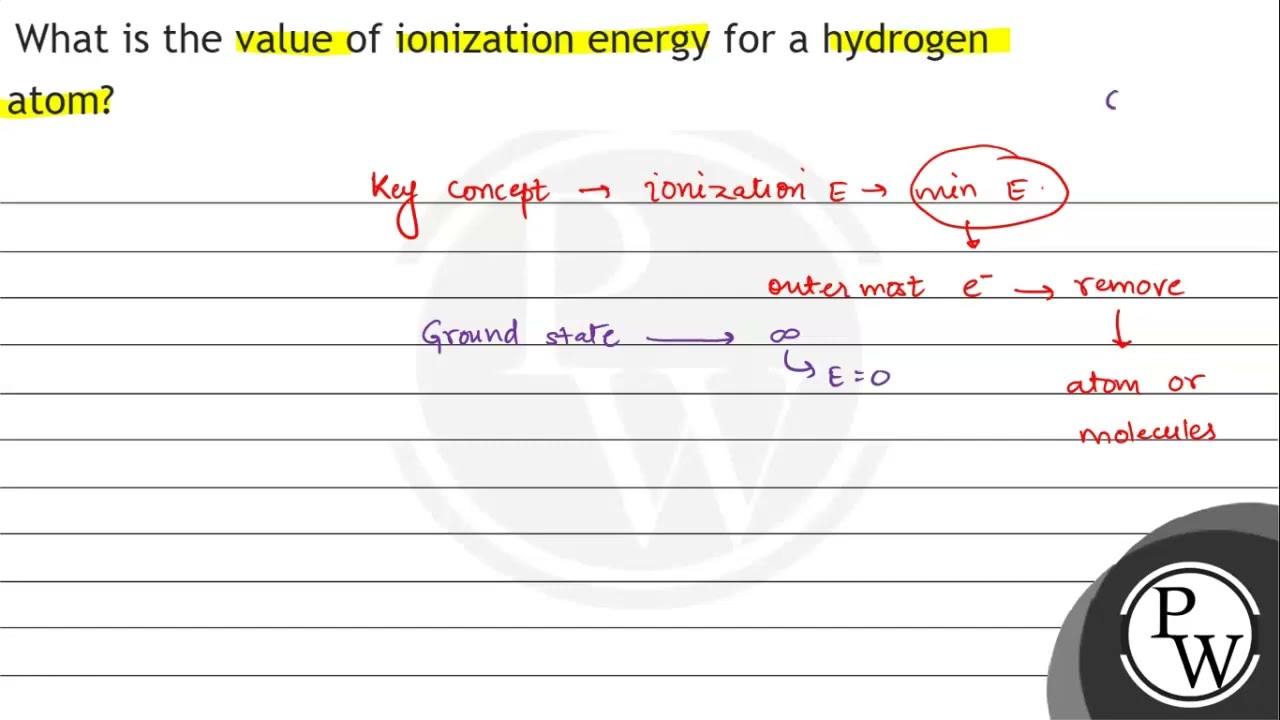 What is the value of ionization energy for a hydrogen
atom?
Key concept → ionization E → min E.
outer most e⁻ → remove
Ground state → ∞
↳ E = 0
atom or
molecules
P
W